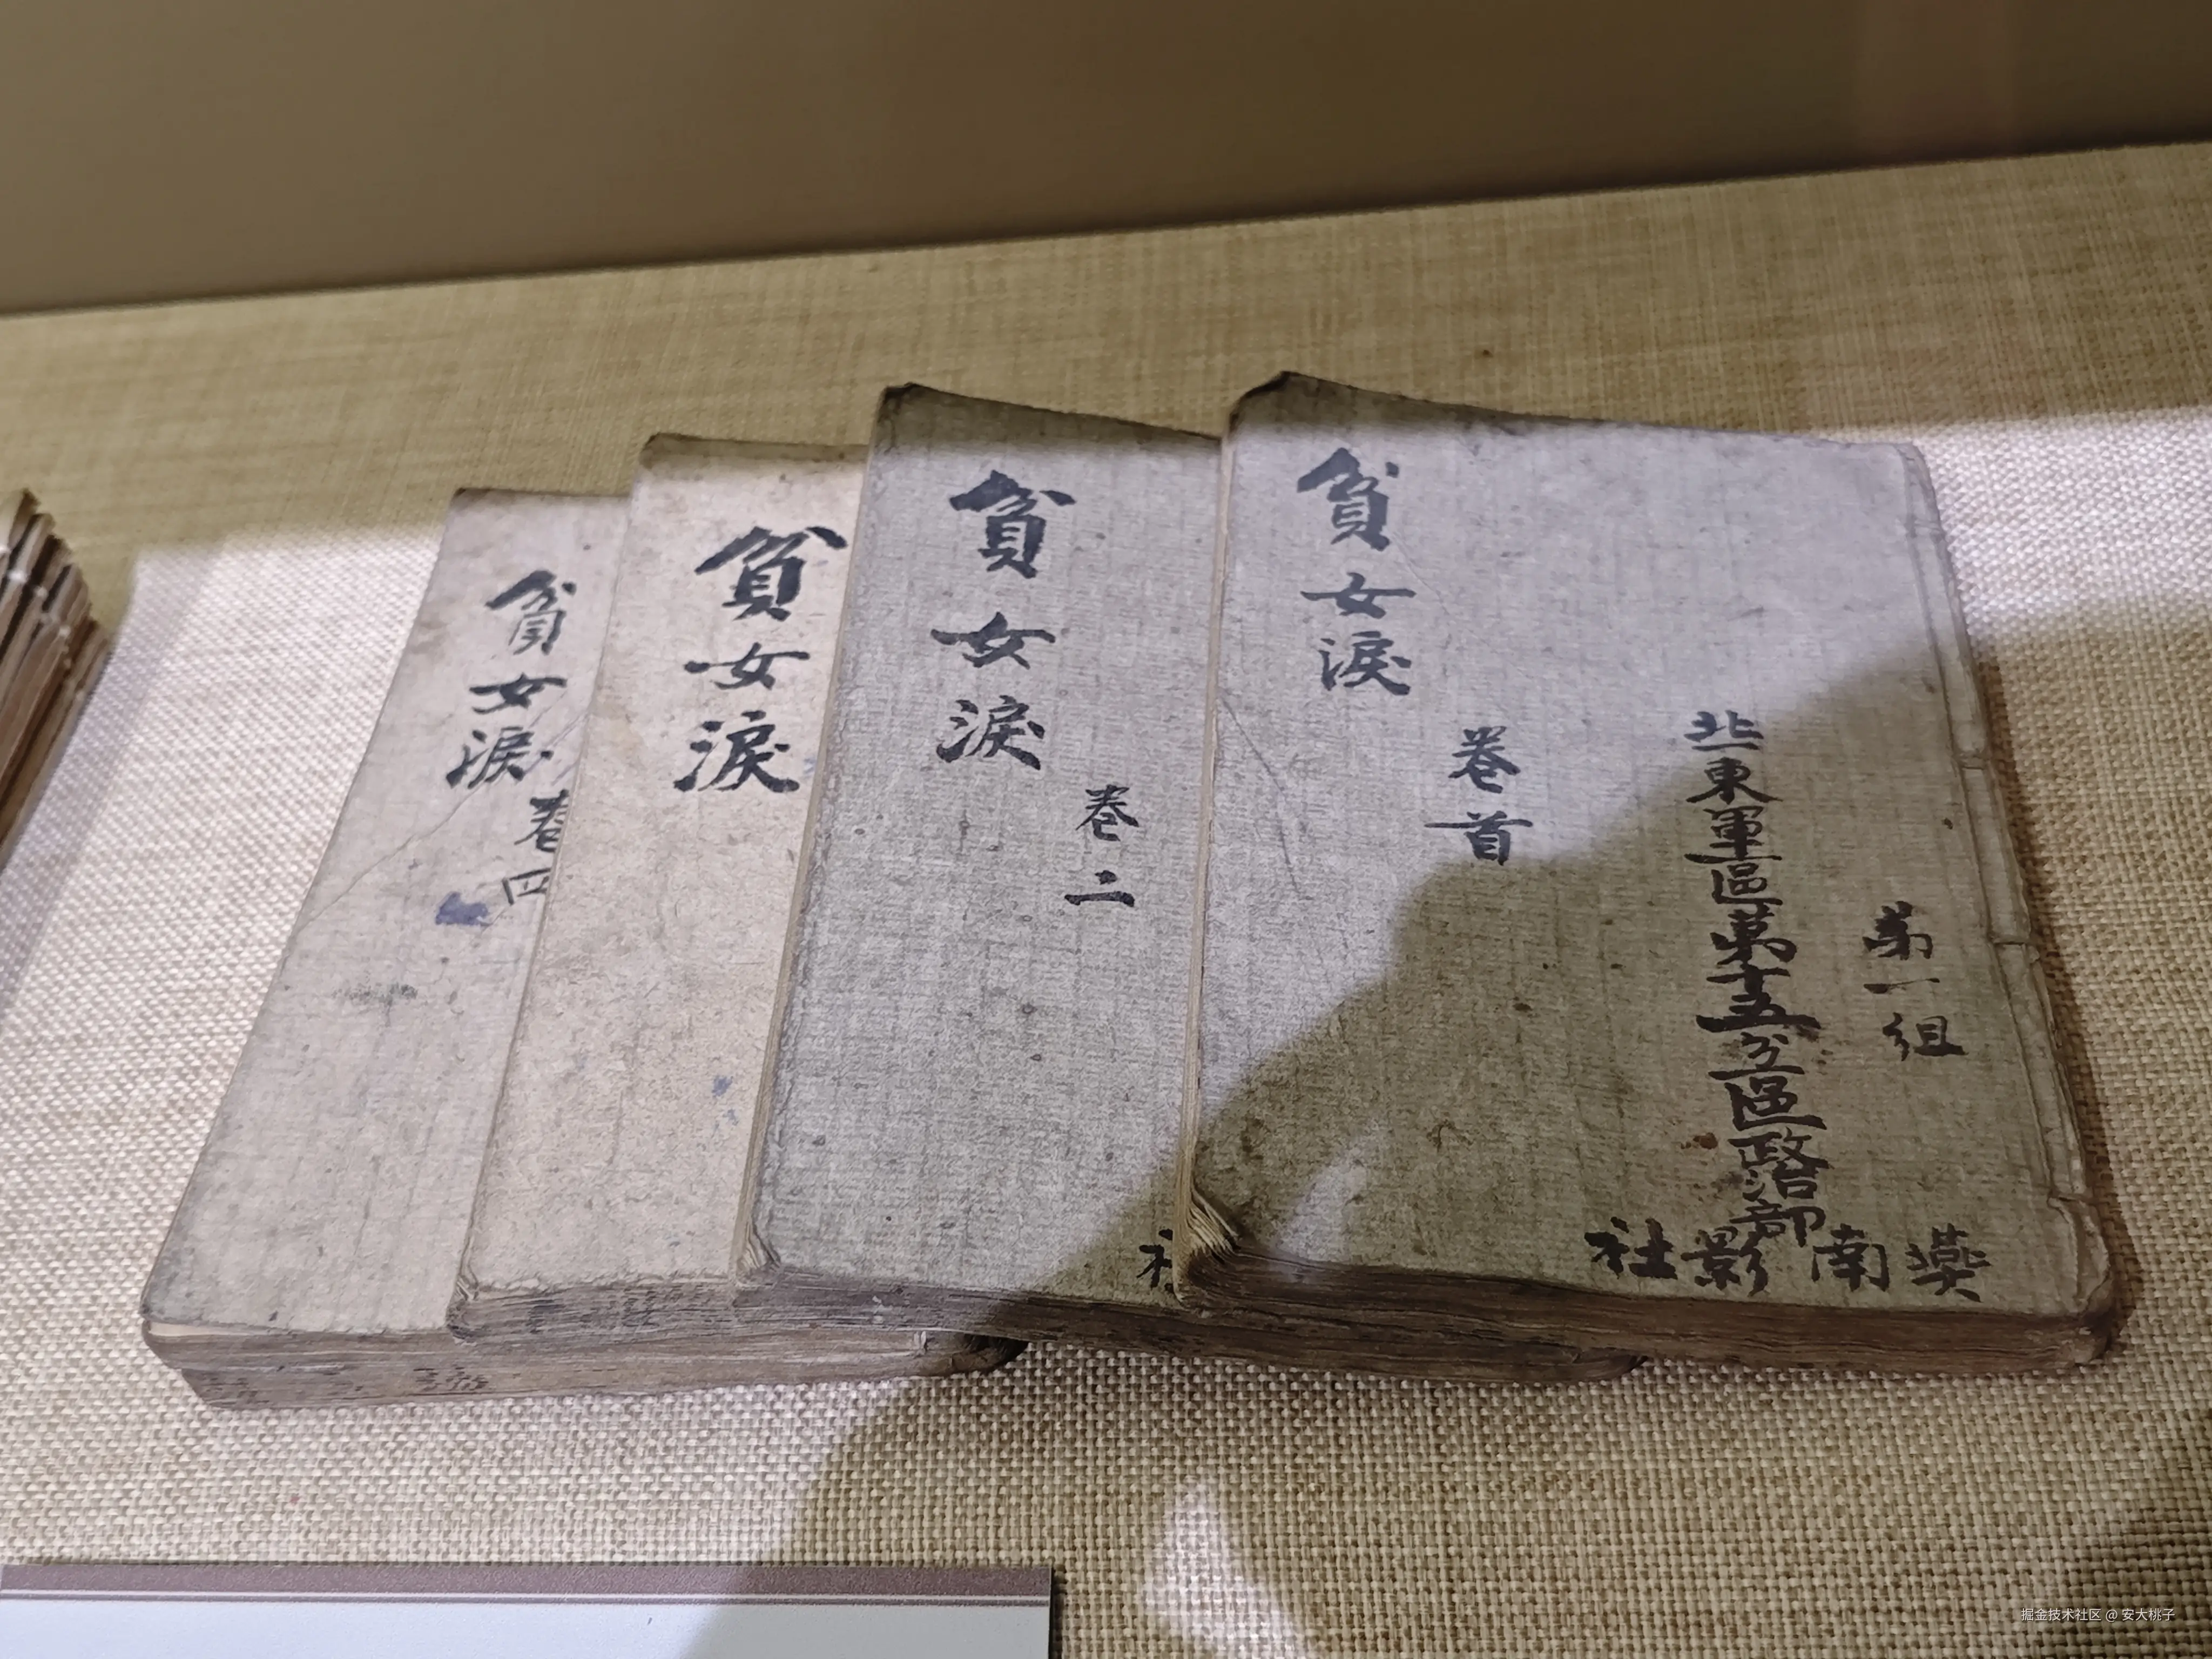 貧女淚
卷四
貧女淚
貧女淚
卷二
貧女淚
卷首
東軍區第十五分區政治部
第一組
社影南
掘金技术社区 @ 安大桃子